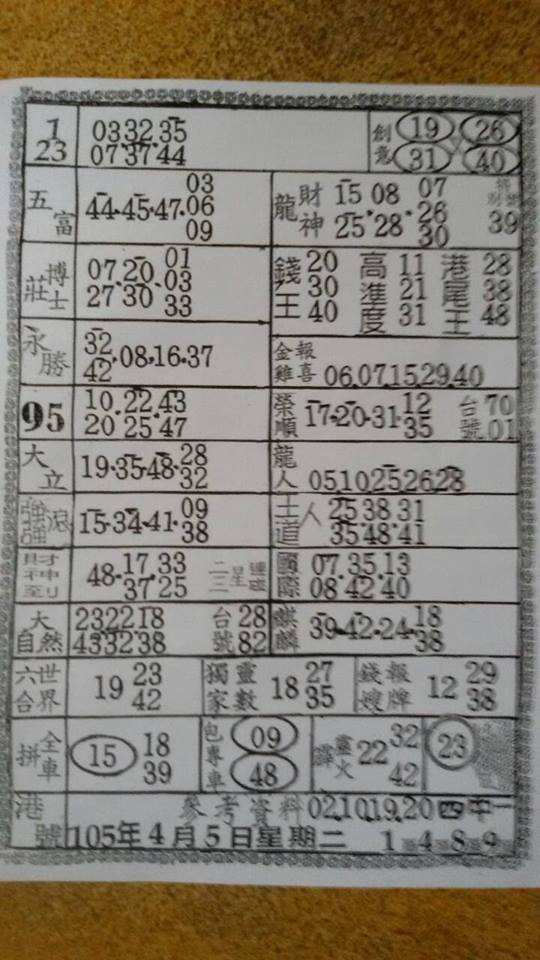 1
23
03.32.35
07.37.44
創意
19 26
31 40
五富
44.45.47.
03
06
09
龍
財神
15 08 07
25.28.26
30
39
莊博士
07.20.01
03
27.30.33
錢王
20
30
40
高準度
11
21
31
港尾王
28
38
48
永勝
32
42
.08.16.37
金雞報喜
06.07.15.29.40
95
10.22.43
20 25 47
榮順
17.20.31.
12
35
台號
70
01
大立
19.35.48.
28
32
龍人
05.10.25.26.28
強強滾
15.34.41.
09
38
王道人
25.38.31
35.48.41
財神到
48.
17.33
37 25
二三星連碰
國際
07.35.13
08.42.40
大自然
23.22.18
43.32.38
台號
28
82
麒麟
39.42.24.
18
38
六合世界
19
23
42
獨家靈數
18
27
35
錢嫂報牌
12
29
38
拼全車
15
18
39
包專車
09
48
霹靂火
22
32
42
23
港號
參考資料02.10.19.20四中一
105年4月5日星期二 1 4 8 9